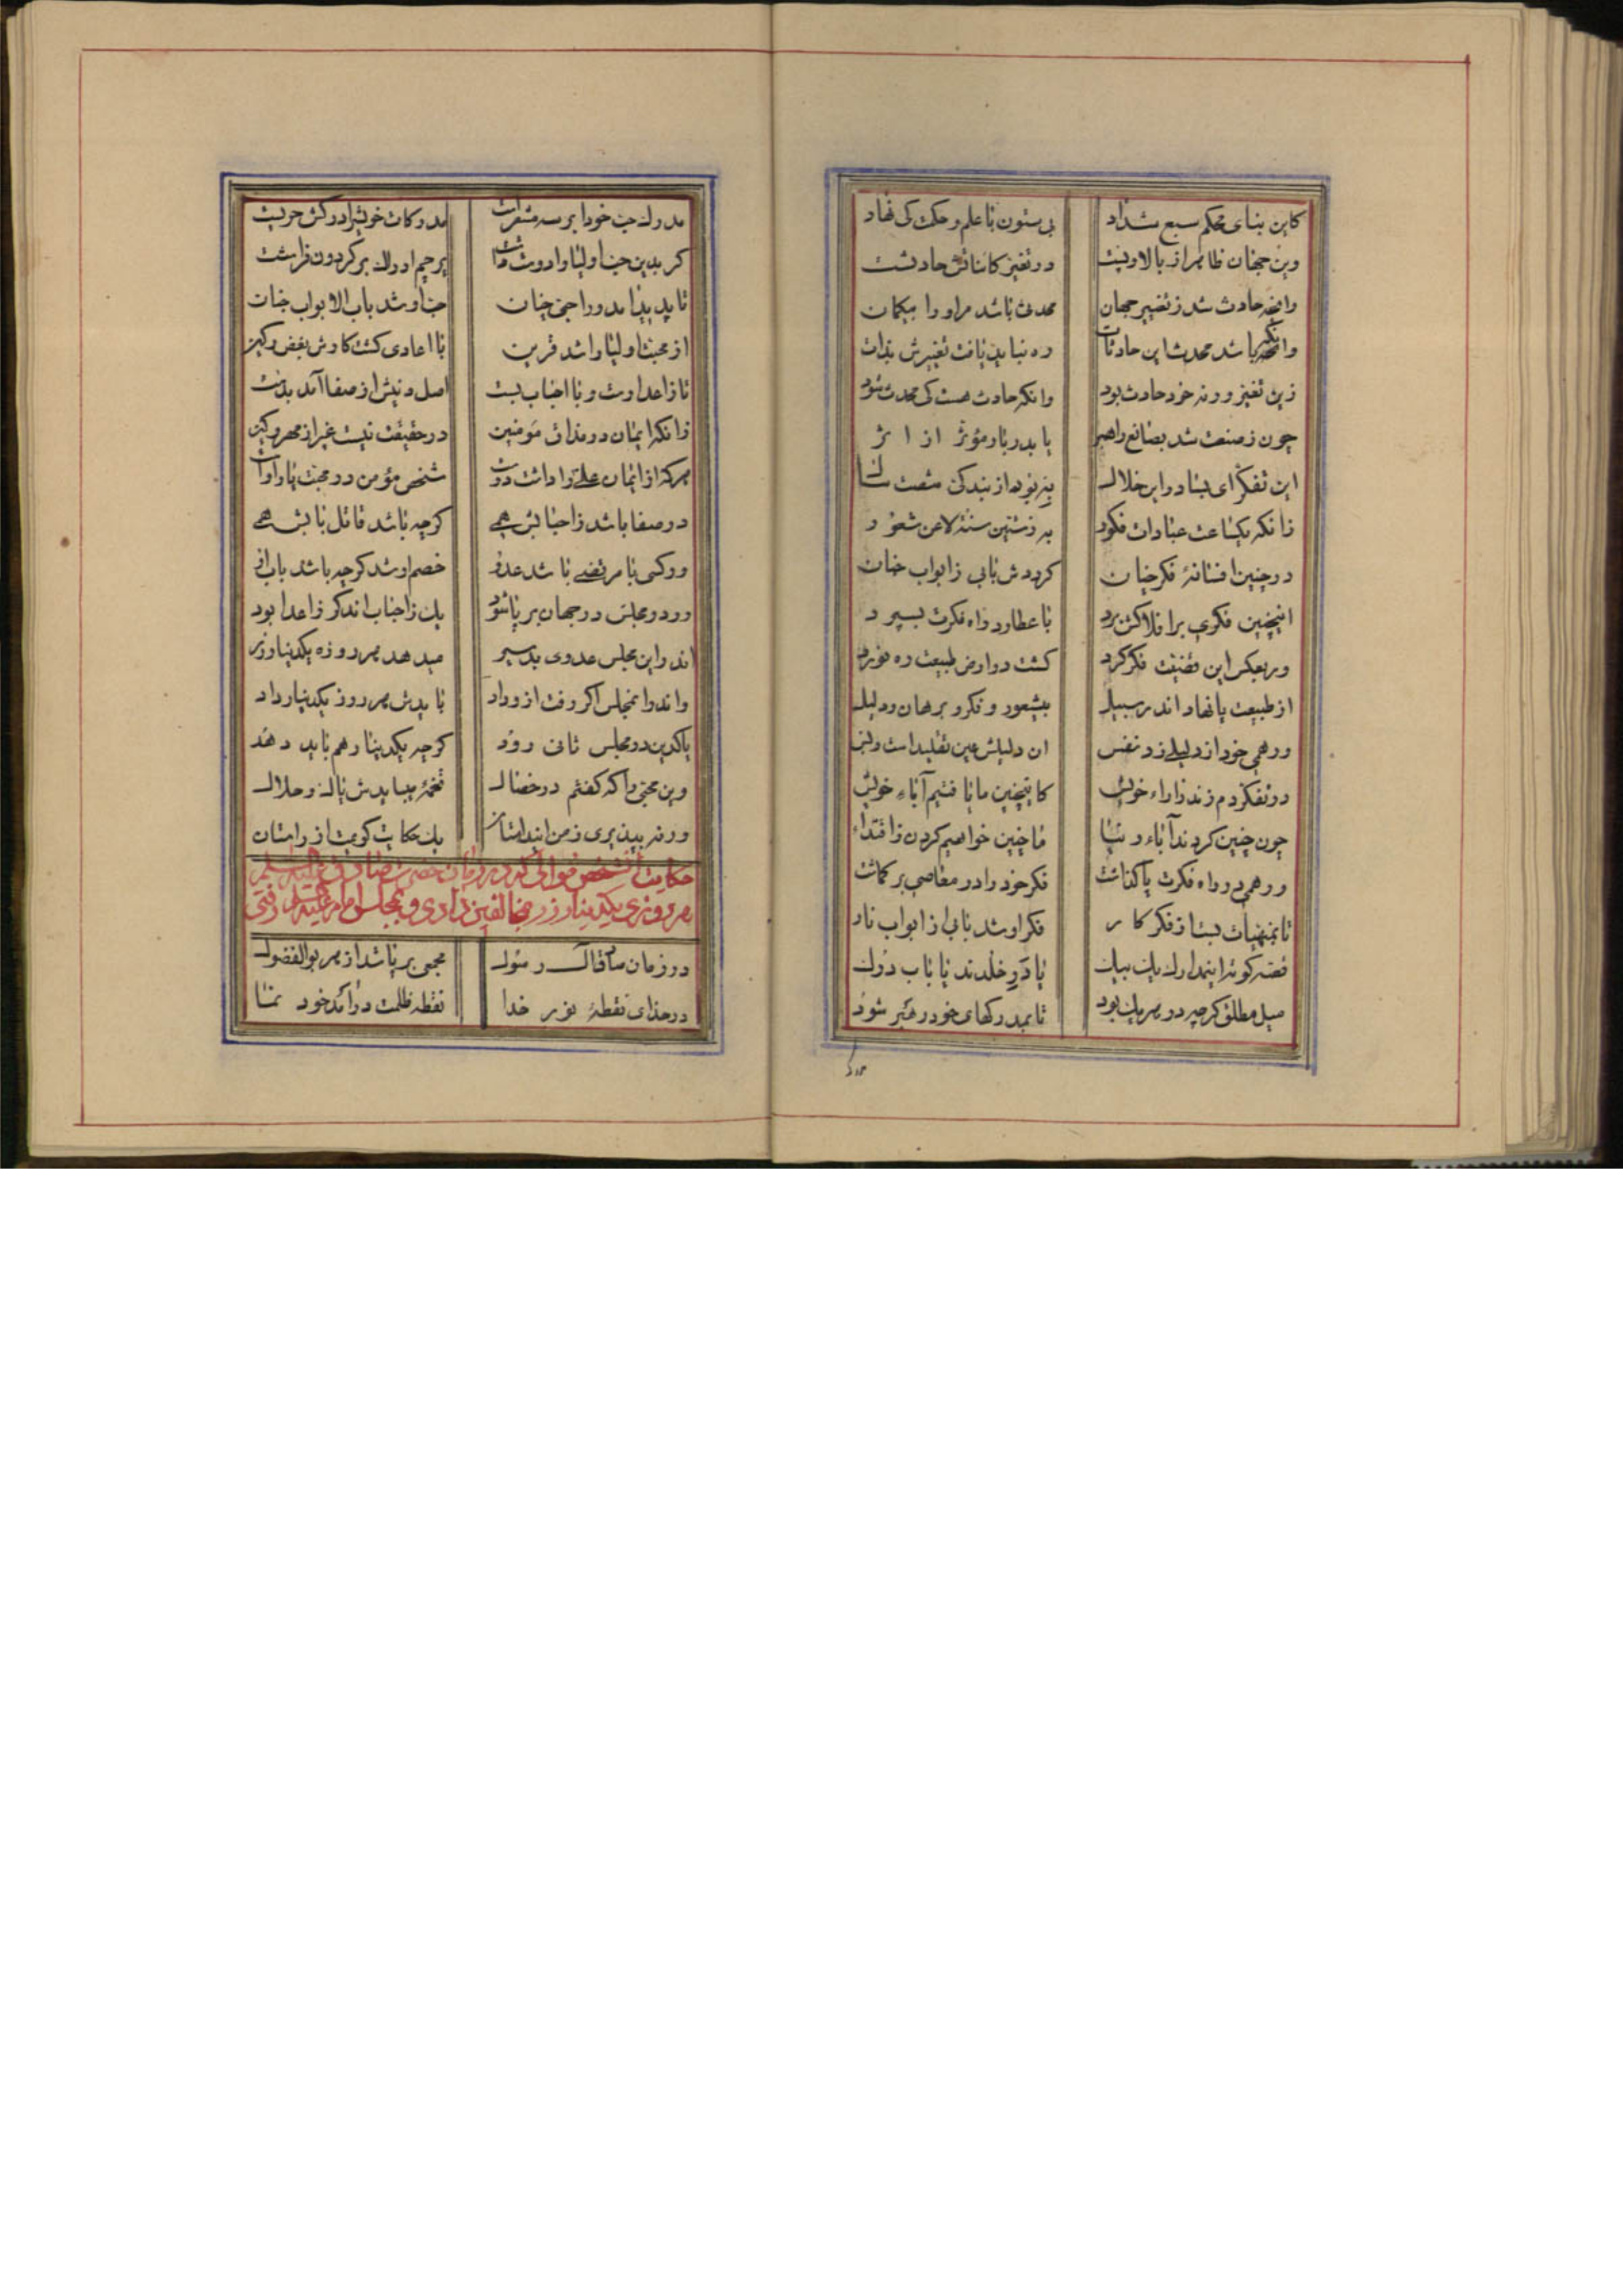 کاین بنای محکم سبع شداد بی ستون با علم و حکمت کی نهاد
وین جهان ظاهر از بالا و پست در تغیر کائناتش حادثست
وانچه حادث شد ز تغییر جهان محدثی باشد مر او را بیکمان
وانکه باشد محدث این حادثات ره نیابد یافت تغییرش بذات
زین تغیر ورنه خود حادث بود وانکه حادث هست کی محدث شود
چون ز صنعت شد بصانع راهبر یابد ربا و مؤثر از اثر
این تفکر ای بنادر این خلال به بود از بندکی شصت سال
زانکه یکساعت عبادات فکور به ز ستین سنة لا عن شعور
در چنین افسانه فکر چنان کردش بابی ز ابواب جنان
اینچنین فکری بر افلاکش برد با عطارد راه فکرت بسپرد
ور بعکس این قضیت فکر کرد کشت در ارض طبیعت ره نورد
از طبیعت پا نهاد اندر سبیل بیشعور و فکر و برهان و دلیل
ور همی خود از دلیلی زد نفس ان دلیلش عین تقلید است و بس
در تفکر دم زند ز آراء خویش کاینچنین ما یافتیم آباء خویش
چون چنین کردند آباء و نیا ما چنین خواهیم کردن ز اقتداء
ور همی در راه فکرت پا کذاشت فکر خود را در معاصی بر کماشت
تا بمنهیات بست از فکر کار فکر او شد بابی از ابواب نار
قصه کوته اینمدارک یک بیک یا در خلدند یا باب درک
میل مطلق کرچه در هر یک بود تا بمدرکهای خود رهبر شود
مدرک حب خود ابر سه مدرکات خویش را در کش
کر بدین حب اولیا را دوست داشت پرچم ادراک بر کردون فراشت
تا پدید آمد ورا حبی چنان حب او شد باب الابواب جنان
از محبت اولیا را شد قرین با اعادی کشت کارش بغض و کین
تا ز اعدا رست و با احباب بست اصل دینش از صفا آمد بدست
زانکه ایمان در مذاق مؤمنین در حقیقت نیست غیر از مهر و کین
هرکه از ایمان علی را داشت دوست شخص مؤمن در محبت یار اوست
در صفا باشد ز احبابش همی کرچه باشد قاتل بابش همی
ور کسی با مرتضی باشد عدو خصم او شد کرچه باشد باب او
ور دو مجلس در جهان بر پا شود یک ز احباب اندکر ز اعدا بود
اندر این مجلس عدوی بد سیر میدهد هر روزه یکدینار زر
واندر انمجلس اکر رفت از وداد بایدش هر روز یکدینار داد
پاکدین در مجلس ثانی رود کرچه یکدینار هم باید دهد
وین محبی را که کفتم در خصال نخمه میبایدش پاک و حلال
ور نه بپذیری ز من اینداستان یک حکایت کویمت از راستان
حکایت شخص موالی که در زمان حضرت صادق علیه السلم
هر روزی یکدینار زر بمخالفین دادی و بمجلس امام علیه السلم رفتی
در زمان صادق آل رسول مجمعی بر پا شد از هر بوالفضول
در حذای نقطه نور خدا نقطه ظلمت در آمد خود نما